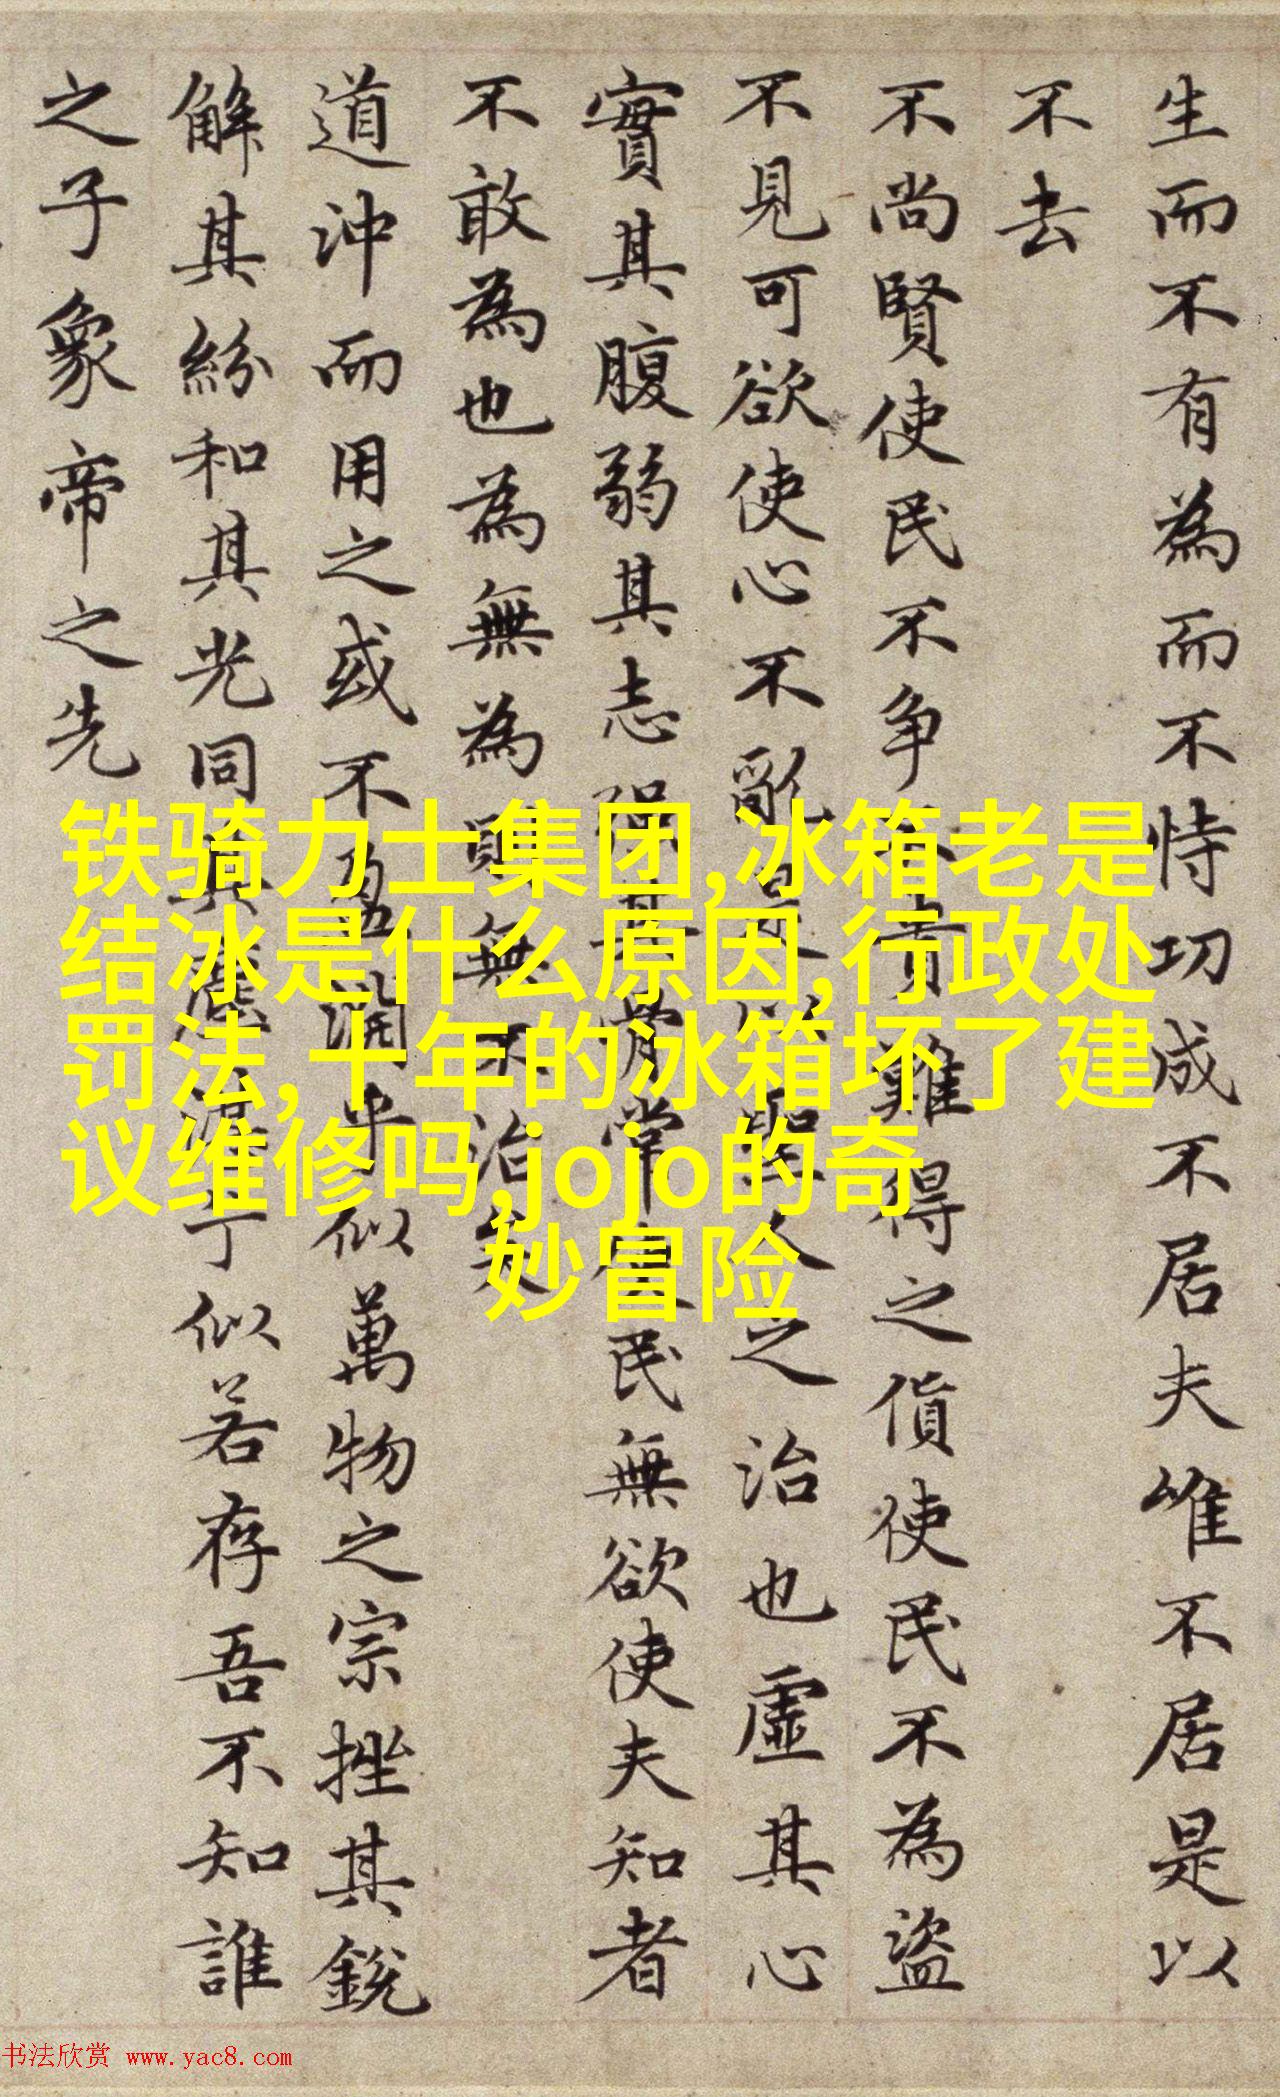 生而不有為而不恃功成不居夫唯不居是以
不去
不尚賢使民不争不貴難得之貨使民不為盜
不見可欲使心不亂是以聖人之治也虛其心
實其腹弱其志强其骨常使民無欲使夫知者
不敢為也為無為則無不治矣
道沖而用之或不盈淵乎似萬物之宗挫其銳
解其紛和其光同其塵湛兮似若存吾不知誰
之子象帝之先
铁骑力士集团,冰箱老是
结冰是什么原因,行政处
罚法,十年的冰箱坏了建
议维修吗,jojo的奇
妙冒险
书法欣赏 www.yac8.com